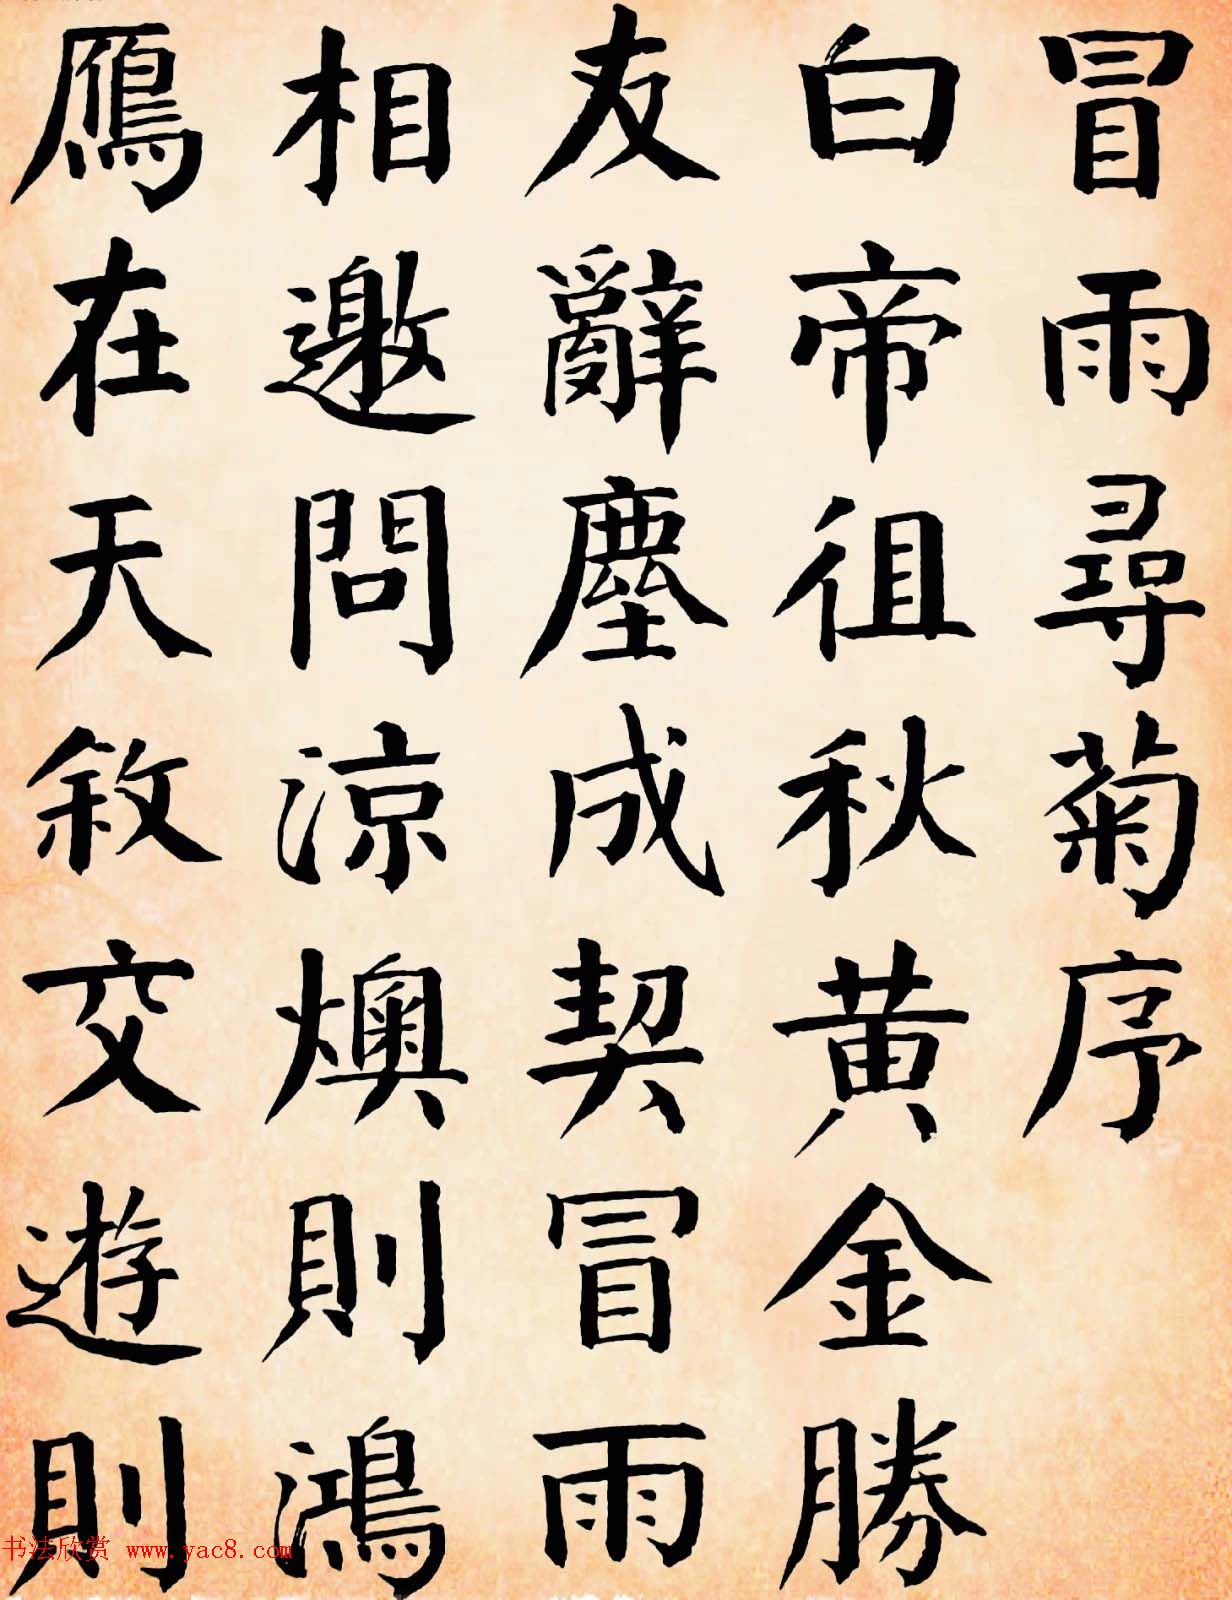 冒雨尋菊序
白帝徂秋黄金勝
友辭塵成契冒雨
相邀問涼燠則鴻
鴈在天敘交遊則
书法欣赏 www.yac8.com